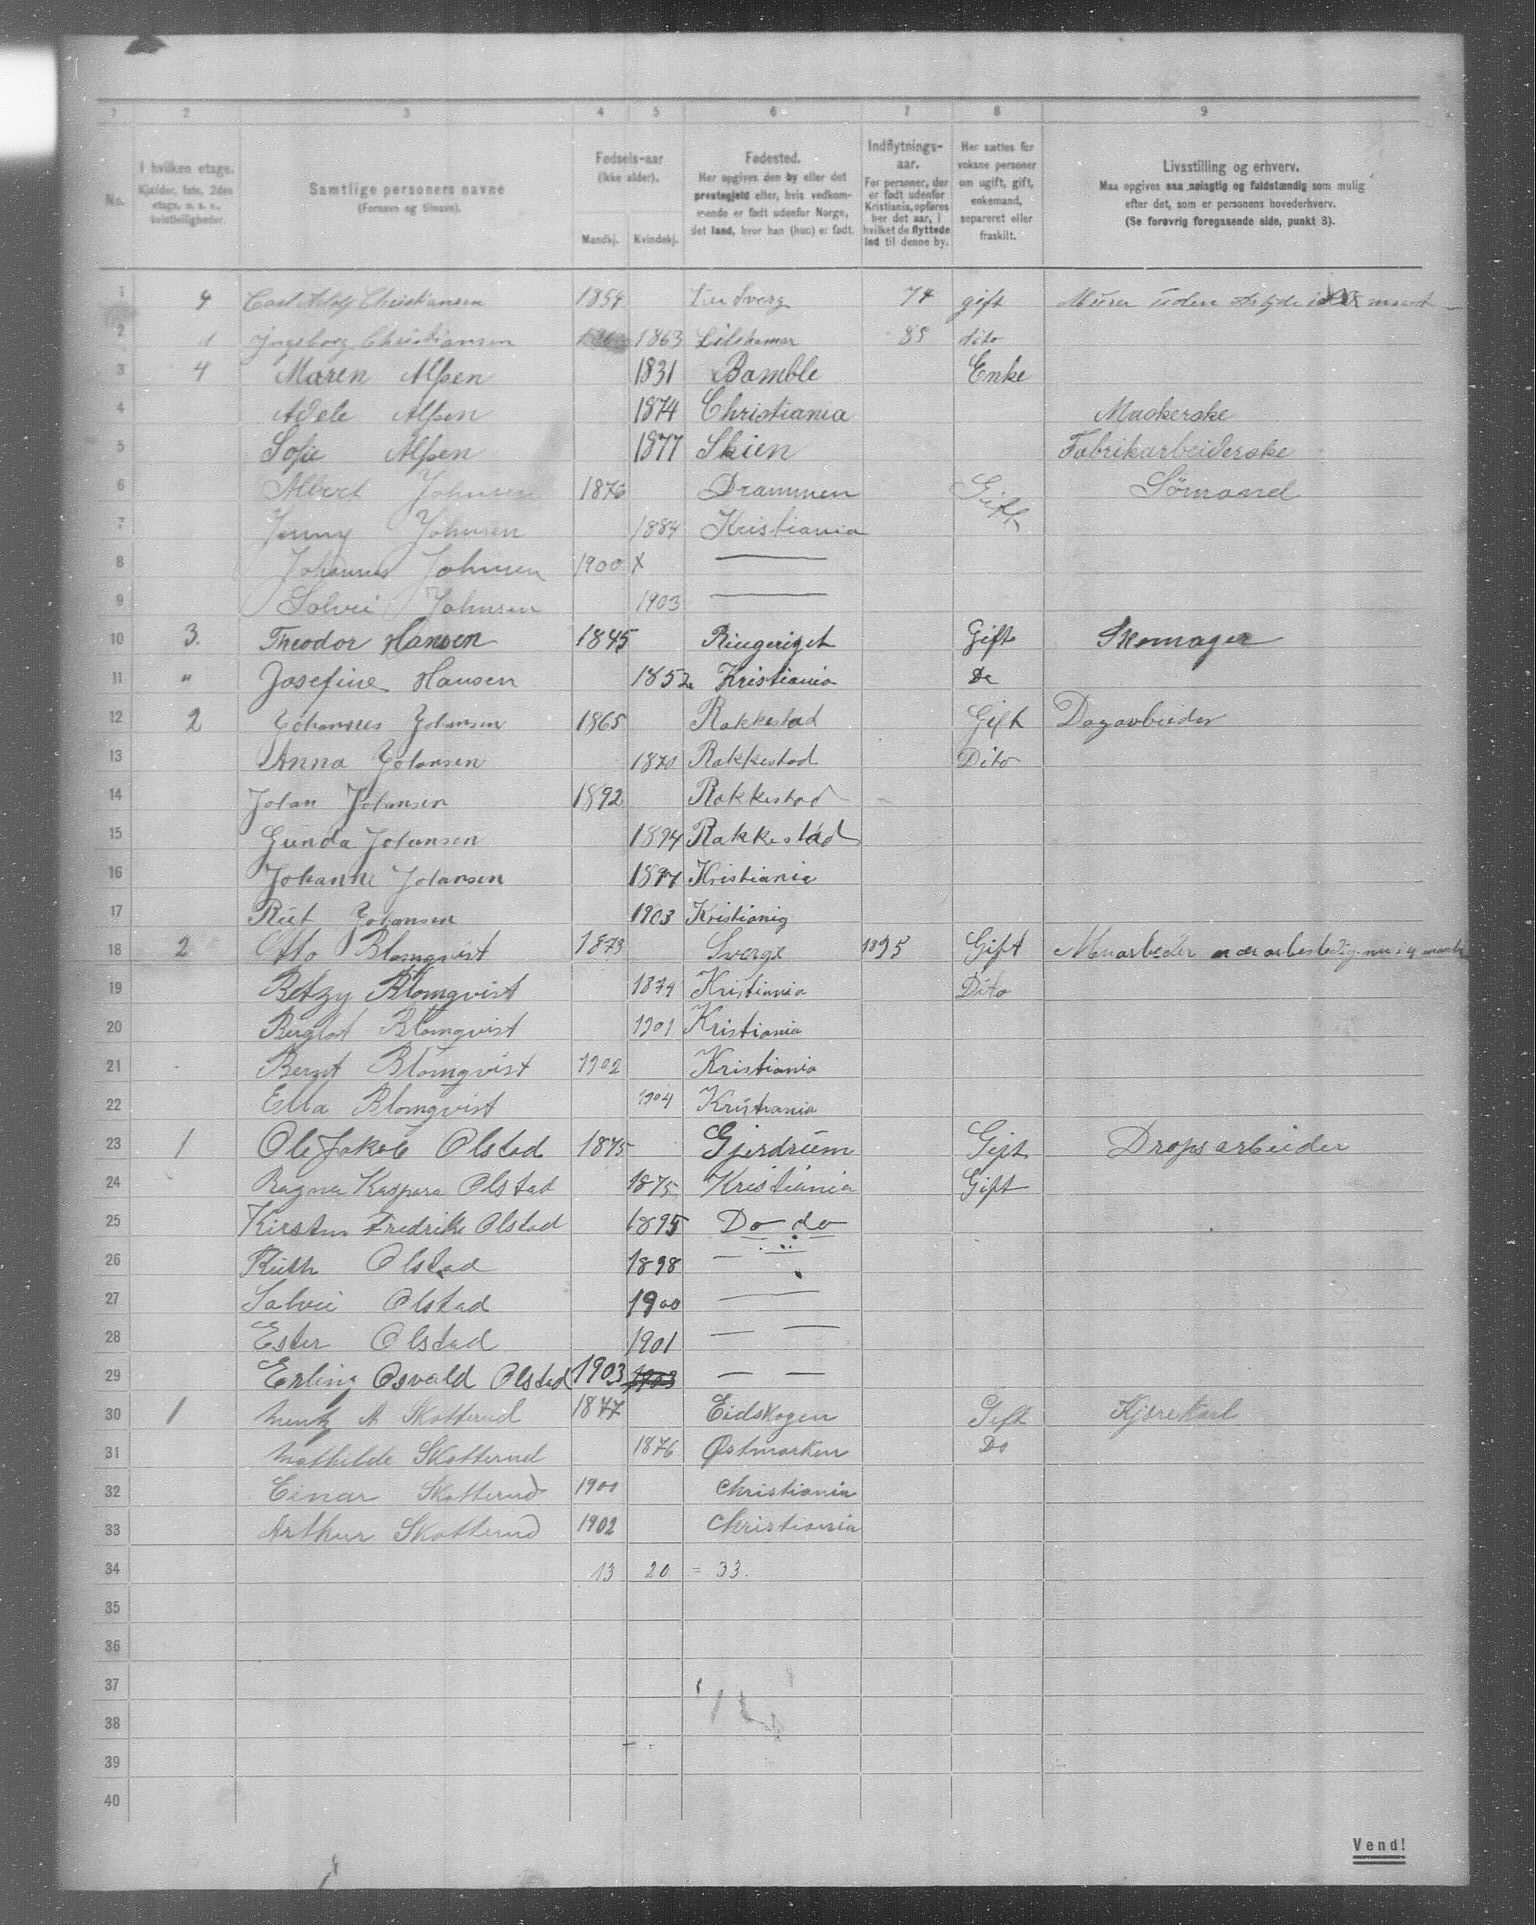 1 2 3 4 5 6 7 8 9
No.
I hvilken etage.
Kjælder, 1ste, 2den etage, o. s. v., kvistleiligheder.
Samtlige personers navne
(Fornavn og tilnavn).
Fødsels-aar
(ikke alder).
Mandkj. Kvindekj.
Fødested.
Her opgives den by eller det
prestegjeld eller, hvis vedkom-
mende er født udenfor Norge,
det land, hvor han (hun) er født.
Indflytnings-
aar.
For personer, der
er født udenfor
Kristiania, opføres
her det aar, i
hvilket de flyttede
ind til denne by.
Her sættes for
voksne personer
om ugift, gift,
enkemand,
separeret eller
fraskilt.
Livsstilling og erhverv.
Maa opgives saa nøiagtig og fuldstændig som mulig
efter det, som er personens hovederhverv.
(Se forøvrig foregaaende side, punkt 3).
1 4 Carl Adolf Christiansen 1854 74 gift Murer uden
2 Ingeborg Christiansen 1863 Lilehamer 85 dito
3 4 Maren Alfsen 1831 Bamble Enke
4 Adele Alfsen 1874 Christiania
5 Sofie Alfsen 1877 Skien Fabrikarbeiderske
6 Albert Johnsen 1876 Drammen Gift Sömand
7 Jenny Johnsen 1884 Kristiania
8 Johannes Johnsen 1900 X —
9 Solvei Johnsen 1903 —
10 3. Theodor Hansen 1845 Ringeriget Gift Skomager
11 " Josefine Hansen 1852 Kristiania Do
12 2 Johannes Johansen 1865 Rakkestad Gift Dagarbeider
13 Anna Johansen 1870 Rakkestad Dito
14 Johan Johansen 1892 Rakkestad
15 Gunda Johansen 1894 Rakkestad
16 Johanne Johansen 1897 Kristiania
17 Rut Johansen 1903 Kristiania
18 2 Otto Blomqvist 1873 Sverge 1895 Gift Murarbeider
19 Betzy Blomqvist 1874 Kristiania Dito
20 Bergliot Blomqvist 1901 Kristiania
21 Bernt Blomqvist 1902 Kristiania
22 Ella Blomqvist 1904 Kristiania
23 1 Ole Jakob Olstad 1875 Gjerdrum Gift Dropsarbeider
24 Ragna Kaspara Olstad 1875 Kristiania Gift
25 Kirsten Fredrike Olstad 1895 Do do
26 Ruth Olstad 1898 — —
27 Solvei Olstad 1900 — —
28 Ester Olstad 1901 — —
29 Erling Osvald Olstad 1903 1903 — —
30 1 A Skotterud 1877 Eidskogen Gift Kjörekarl
31 Mathilde Skotterud 1876 Østmarken Do
32 Einar Skotterud 1900 Christiania
33 Arthur Skotterud 1902 Christiania
34 13 20 = 33.
35
36
37
38
39
40
Vend!